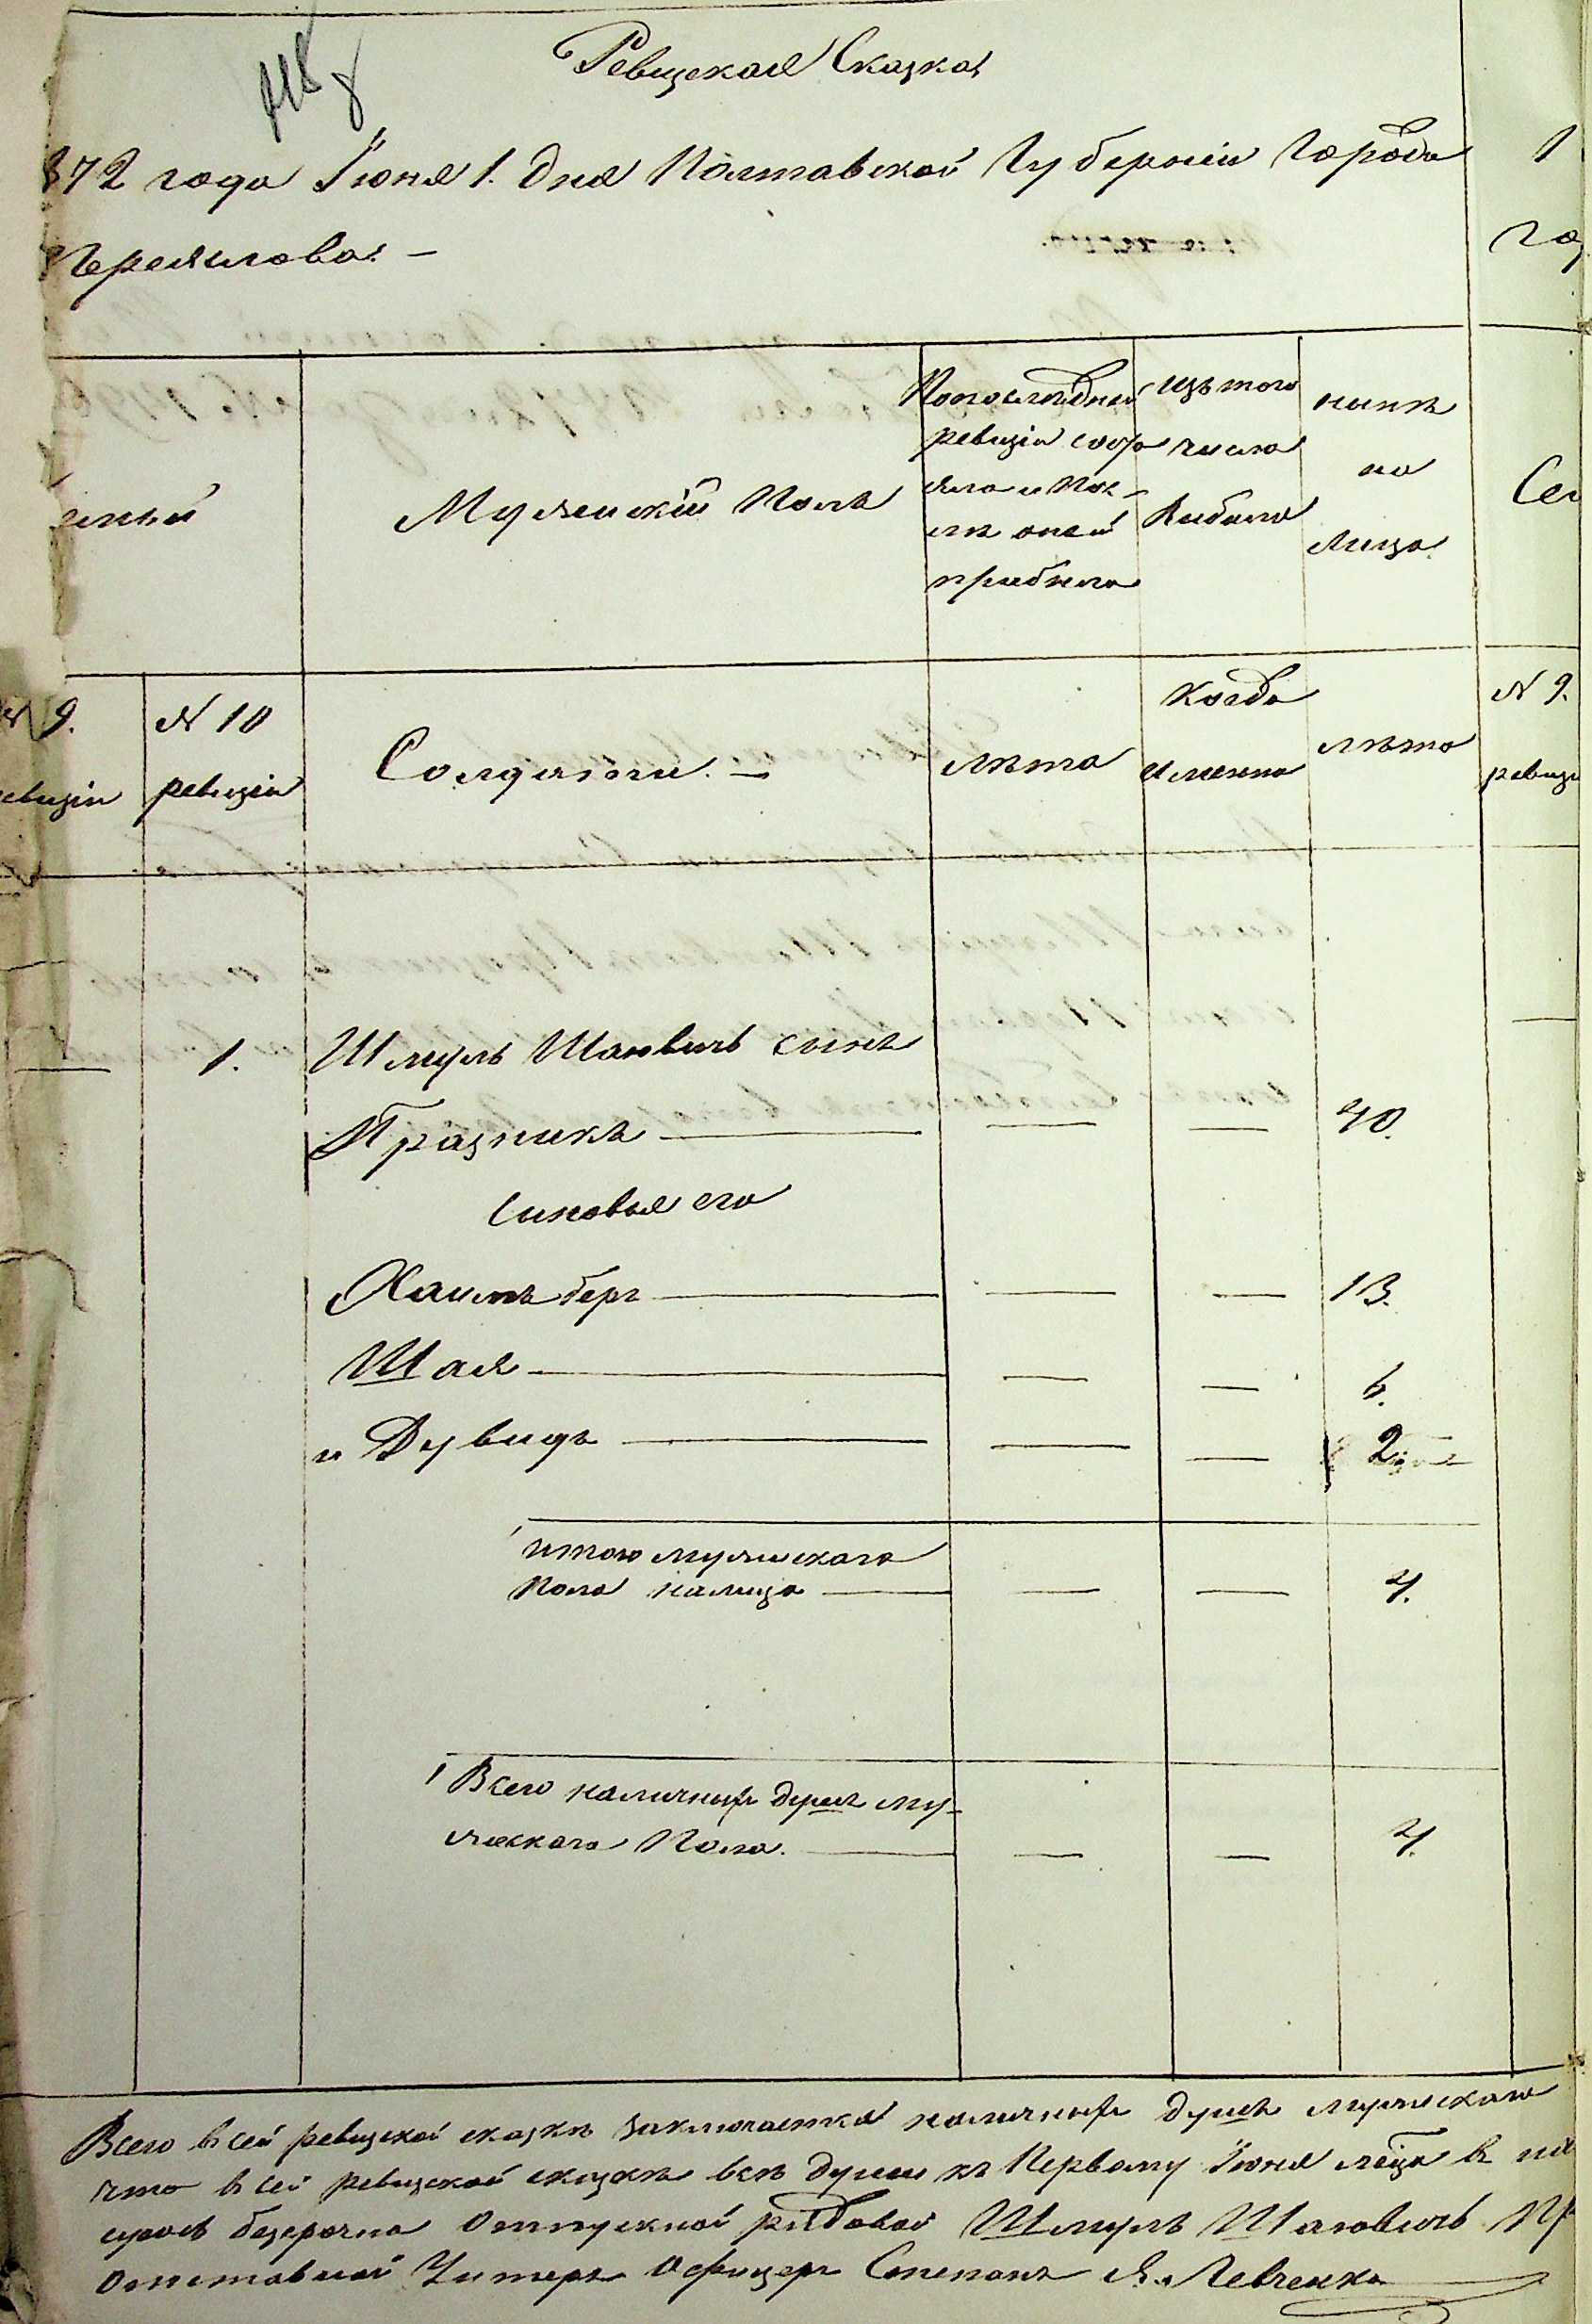 Ревизская Сказка
872 года Іюня 1. дня Полтавской Губерніи Города
Переяслова. —
Мужескій Полъ
Попоследней
ревизіи состо
яло и пос-
ле оной
прибыло
изъ того
числа
выбыло
ныне
на
лицо.
N 9.
ревизіи
N 10
ревизіи
Солдаты. —
лета
когда
именно
лета
N 9.
1. Шмуль Шаевичъ сынъ
Празникъ — — — 40.
сыновья его
Хаимъ беръ — — — 13.
Шая — — — 6.
и Дувидъ — — — 2
итого мужескаго
пола налицо — — — 4.
Всего наличныхъ душъ му-
жескаго Пола. — — — 4.
Всего в сей ревизской сказке заключается наличныхъ душъ мужескаго
что в сей ревизской сказке все души къ Первому Іюня
безсрочно Отпускной рядовой Шмуль Шаевичъ Пр
Отставной Унтеръ Офицеръ Степанъ Левченко